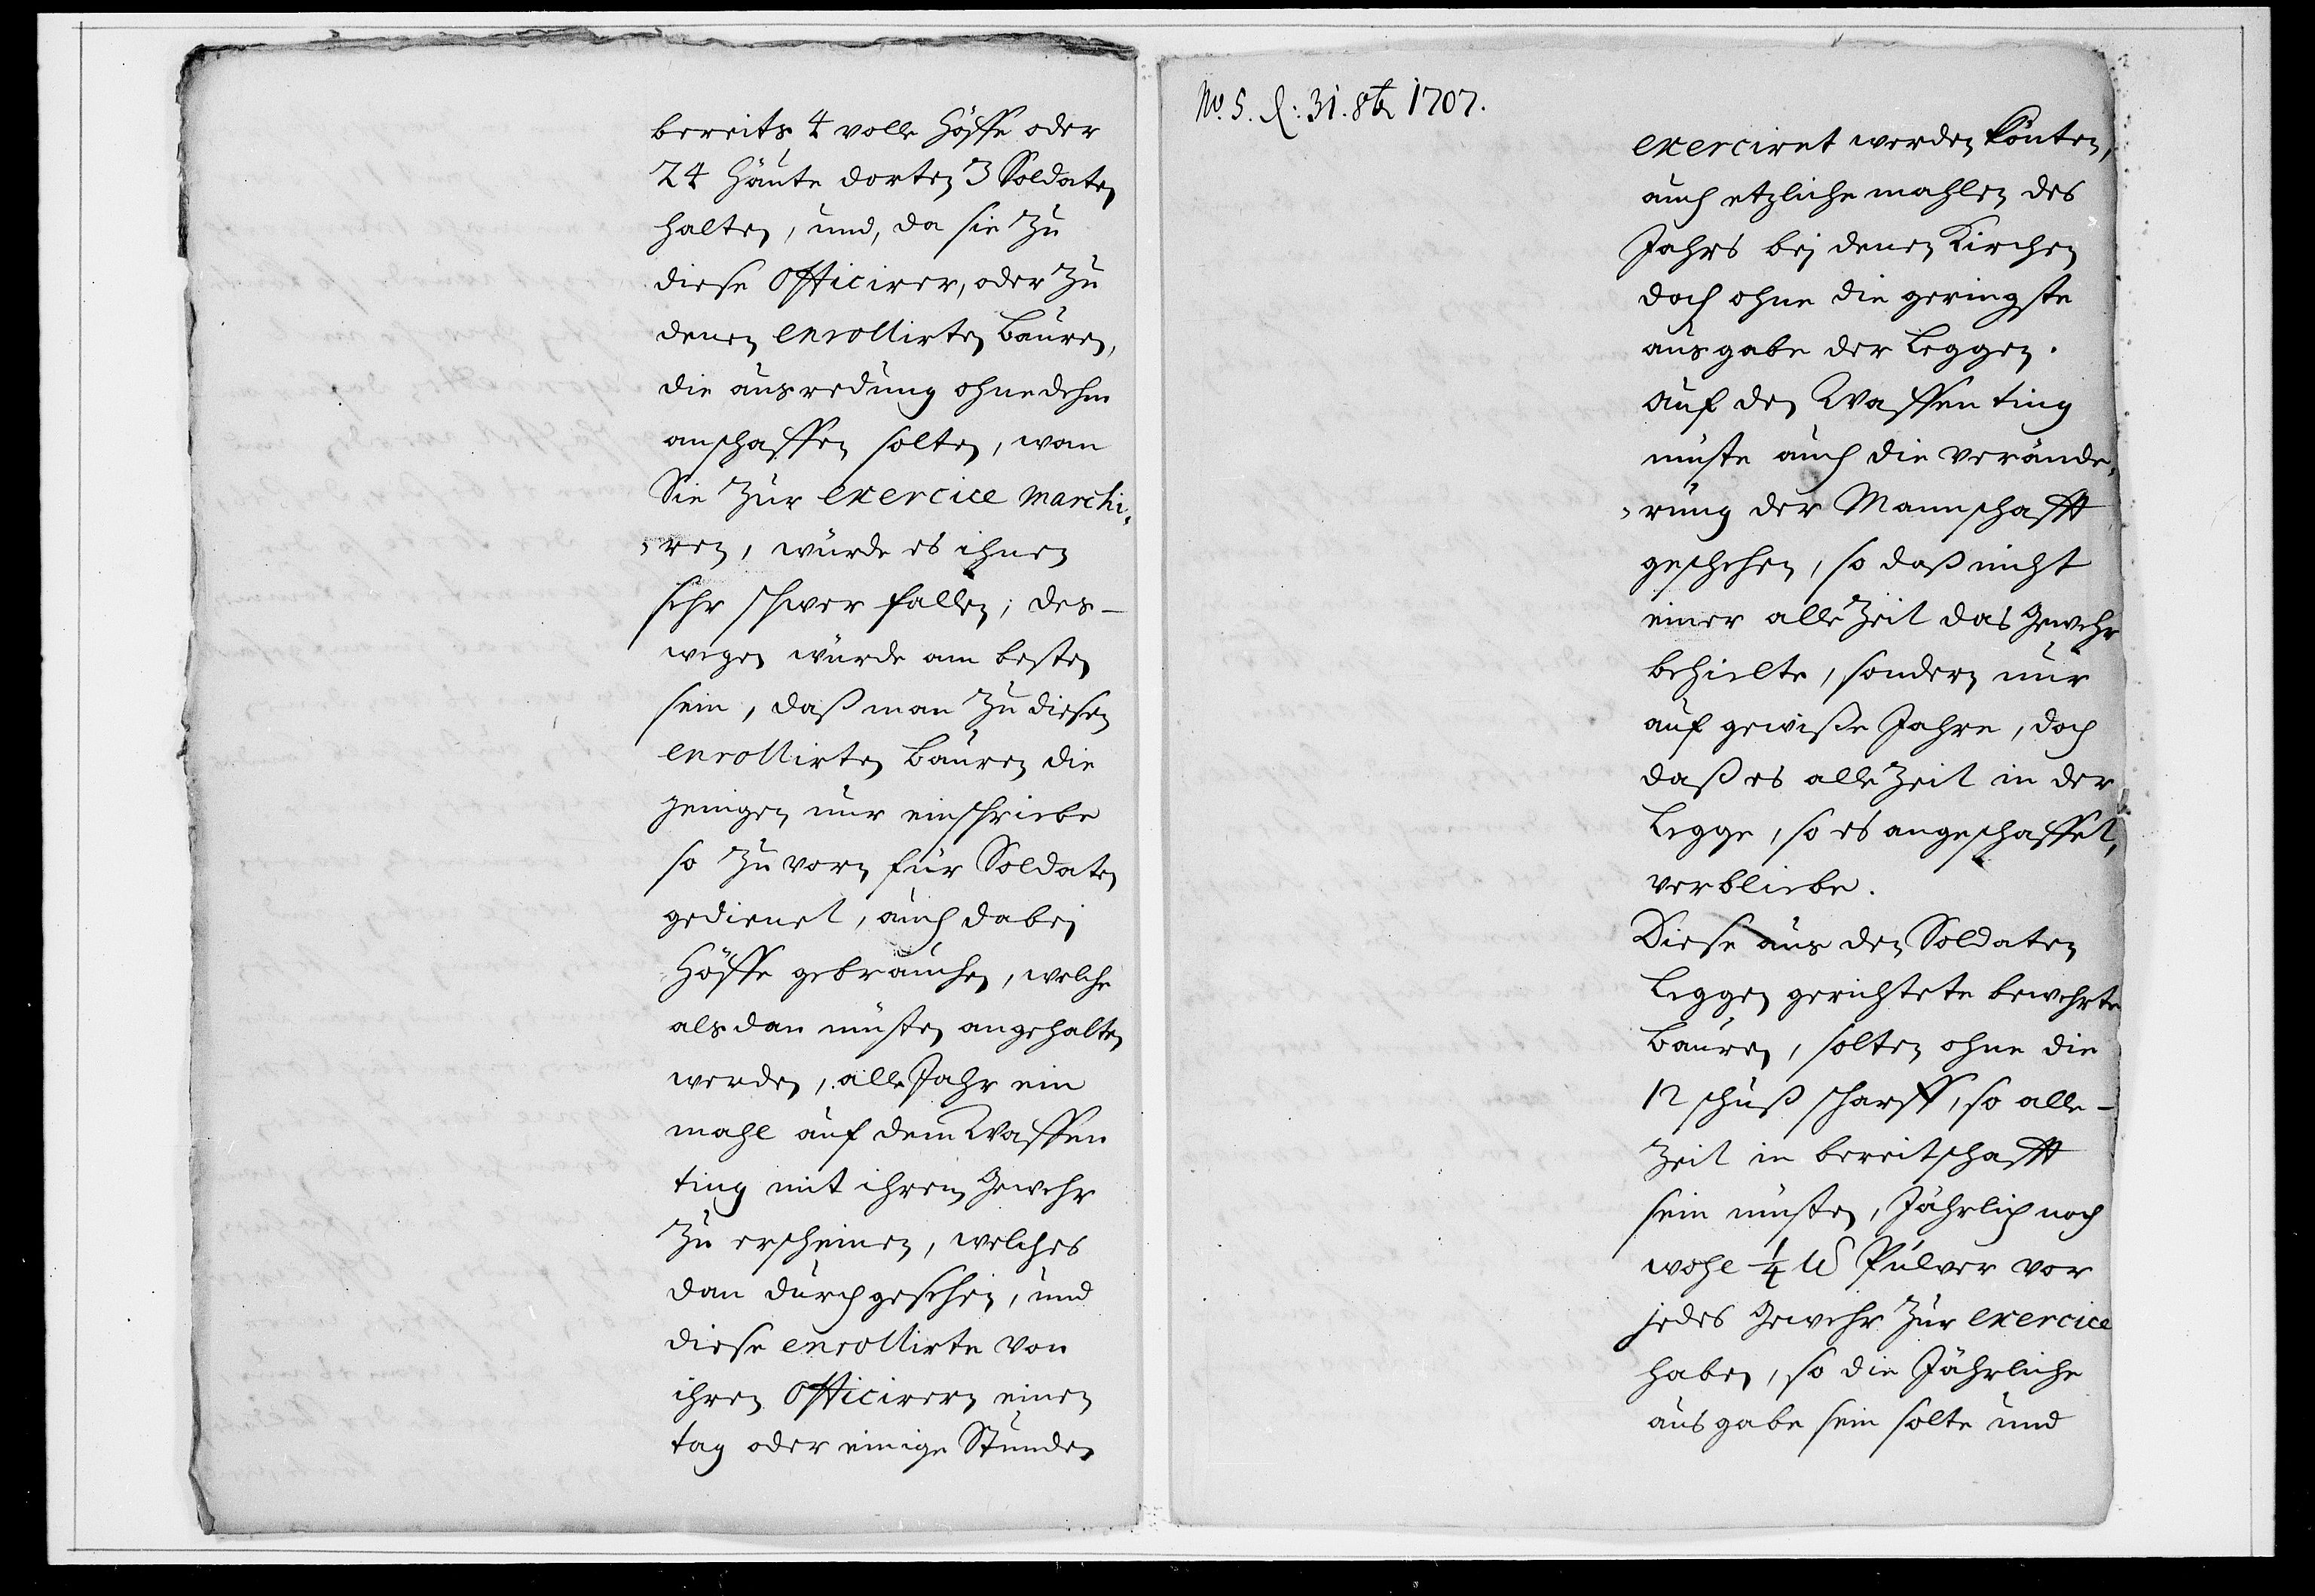 bereits 4 volle Höffe oder
24 Häute dorten 3 Soldaten
halten, und, da sie zu
diese Officirer, oder zu
denen enrollirten Bauren,
die ausredung ohne dehm
anschaffen solten, wan
Sie zur exercice marchi=
=ren, würde es ihnen
sehr schwer fallen; des-
wegen würde am besten
sein, daß man zu diesen
enrollirten Bauren die
jenigen nur einschriebe
so zu vorn für Soldaten
gedienet, auch dabei
Höffe gebrauchen, welche
als dan müsten angehalten
werden, alle Jahr ein
mahl auf dem Waffen
ting mit ihrem Gewehr
zu erscheinen, welches
dan durch gesehen, und
diese enrollirte von
ihren Officirern einen
tag oder einige Stunden
No. 5. d: 31. 8br 1707.
exerciret werden könten,
auch etzliche mahlen des
Jahrs bej denen Kirchen
doch ohne die geringste
ausgabe der Leggen.
Auf den Waffen ting
müste auch die verände=
=rung der Mannschafft
geschehen, so daß nicht
einer alle Zeit das Gewehr
behielte, sondern nur
auf gewiße Jahre, doch
daß es alle Zeit in der
Legge, so es angeschaffet,
verbliebe.
Diese aus den Soldaten
Leggen gerichtete bewehrte
Bauren, solten ohne die
12 schuß scharff, so alle-
Zeit in bereitschafft
sein müsten, Jährlich noch
wohl 1/4 ℔ Pulver vor
jedes Gewehr zur exercice
haben, so die Jährliche
ausgabe sein solte und